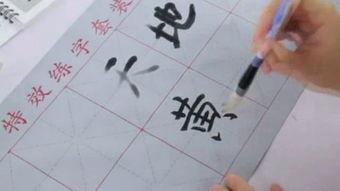 特效练字套装
天地
黄